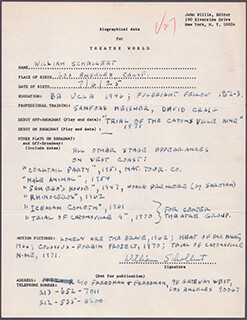 John Willis, Editor
190 Riverside Drive
New York, N. Y. 10024
1/27
biographical data
for
THEATRE WORLD
NAME WILLIAM SCHALLERT
PLACE OF BIRTH LOS ANGELES CALIF.
DATE OF BIRTH 7/6/25
EDUCATION: BA UCLA 1946; FULBRIGHT FELLOW 1952-3
PROFESSIONAL TRAINING: SANFORD MEISNER, DAVID CRAIG
DEBUT OFF-BROADWAY (Play and date) "TRIAL OF THE CATONSVILLE NINE"
DEBUT ON BROADWAY (Play and date) 1971
OTHER PLAYS ON BROADWAY
and Off-Broadway:
(include dates)
ALL OTHER STAGE APPEARANCES
ON WEST COAST:
"COCKTAIL PARTY", 1951, NAT. TOUR CO.
"MALE ANIMAL", 1954
"RHINOCEROS", 1962
"ICEMAN COMETH", 1961
"TRIAL OF CATONSVILLE 9", 1970
FOR CENTER
THEATRE GROUP.
MOTION PICTURES: LONELY ARE THE BRAVE, 1962;
COLOSSUS - FORBIN PROJECT, 1970; TRIAL OF CATONSVILLE
NINE, 1971.
William Schallert
Signature
(Not for publication)
ADDRESS: C/O FREEDMAN & FREEDMAN, GATEWAY WEST,
TELEPHONE NUMBER: 213-652-7011 LOS ANGELES 90067